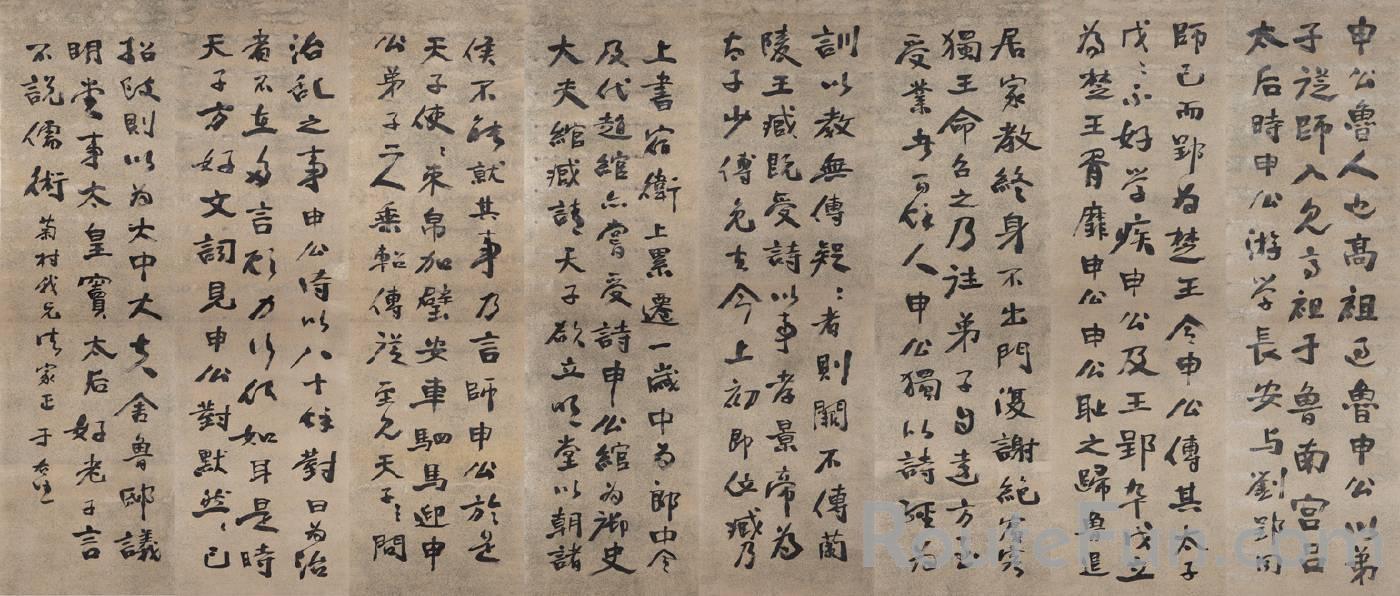 申公魯人也高祖過魯申公以弟
子從師入見高祖于魯南宮呂
太后時申公游学長安与劉郢同
師已而郢為楚王令申公傅其太子
戊〻不好学疾申公及王郢卒戊立
為楚王胥靡申公申公恥之歸魯退
居家教終身不出門復謝絕賓客
獨王命召之乃往弟子自遠方至
受業者百餘人申公獨以詩經為
訓以教無傳疑〻者則闕不傳蘭
陵王臧既受詩以事孝景帝為
太子少傅免去今上初即位臧乃
上書宿衛上累遷一歲中為郎中令
及代趙綰亦嘗受詩申公綰為御史
大夫綰臧請天子欲立明堂以朝諸
侯不能就其事乃言師申公於是
天子使〻束帛加璧安車駟馬迎申
公弟子二人乘軺傳從至見天子〻問
治乱之事申公時以八十餘對曰為治
者不在多言顧力行何如耳是時
天子方好文詞見申公對默然〻已
招致則以為太中大夫舍魯邸議
明堂事太皇竇太后好老子言
不說儒術 菊村我兄法家正 于右任
RouteFun.com